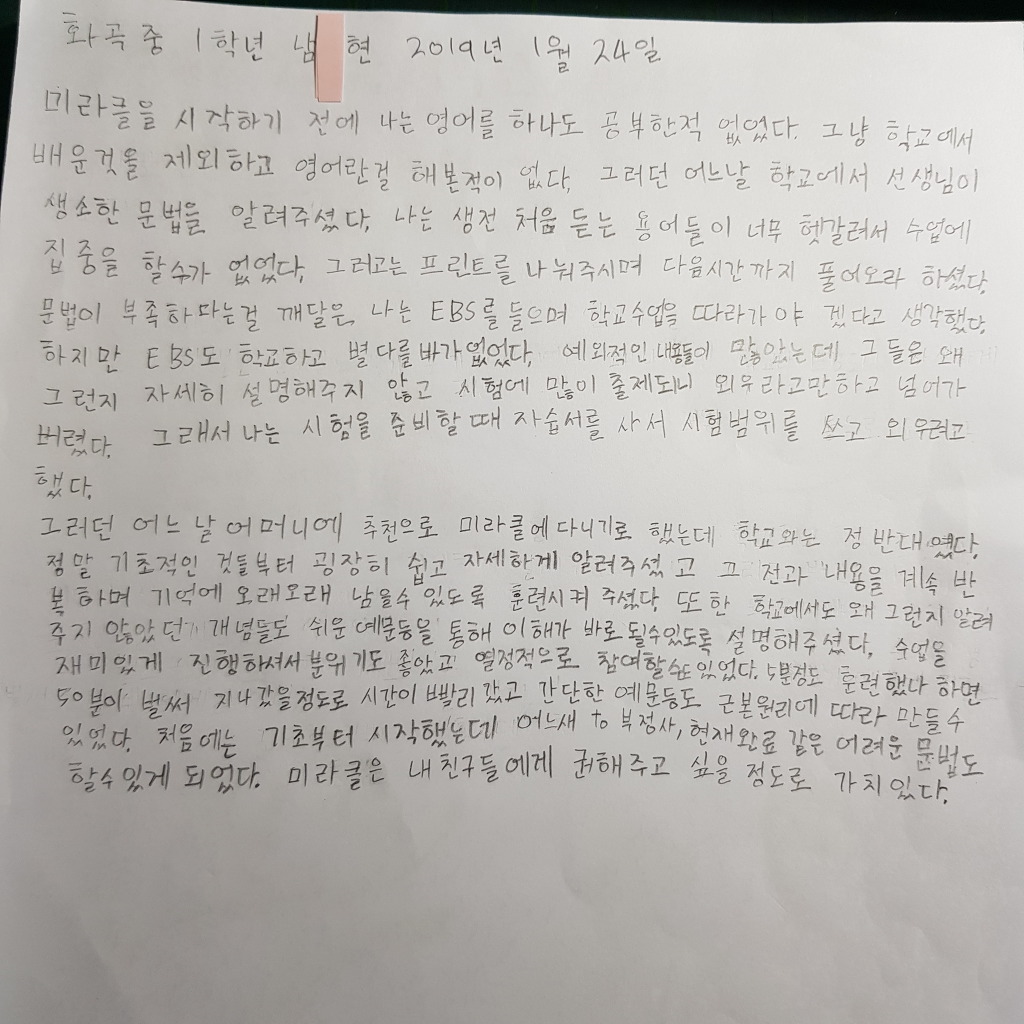 화곡중 1학년 남 현 2019년 1월 24일
미라클을 시작하기 전에 나는 영어를 하나도 공부한적 없었다. 그냥 학교에서
배운것을 제외하고 영어란걸 해본적이 없다. 그러던 어느날 학교에서 선생님이
생소한 문법을 알려주셨다, 나는 생전 처음 듣는 용어들이 너무 헷갈려서 수업에
집중을 할수가 없었다, 그러고는 프린트를 나눠주시며 다음시간까지 풀어오라 하셨다,
문법이 부족하다는걸 깨달은, 나는 EBS를 들으며 학교수업을 따라가야 겠다고 생각했다,
하지만 EBS도 학교하고 별다를바가 없었다, 예외적인 내용들이 많았는데 그들은 왜
그런지 자세히 설명해주지 않고 시험에 많이 출제되니 외우라고만하고 넘어가
버렸다. 그래서 나는 시험을 준비할때 자습서를 사서 시험범위를 쓰고 외우려고
했다.
그러던 어느날 어머니에 추천으로 미라클에 다니기로 했는데 학교와는 정반대였다,
정말 기초적인 것들부터 굉장히 쉽고 자세하게 알려주셨고 그 전과 내용을 계속 반
복하며 기억에 오래오래 남을수 있도록 훈련시켜 주셨다, 또한 학교에서도 왜 그런지 알려
주지 않았던 개념들도 쉬운 예문등을 통해 이해가 바로 될수있도록 설명해주셨다, 수업을
재미있게 진행하셔서 분위기도 좋았고 열정적으로 참여할수 있었다. 5분정도 훈련했나 하면
50분이 벌써 지나갔을정도로 시간이 빨리 갔고 간단한 예문등도 근본원리에 따라 만들수
있었다, 처음에는 기초부터 시작했는데 어느새 to 부정사, 현재완료 같은 어려운 문법도
할수있게 되었다. 미라클은 내 친구들에게 권해주고 싶을 정도로 가치있다.